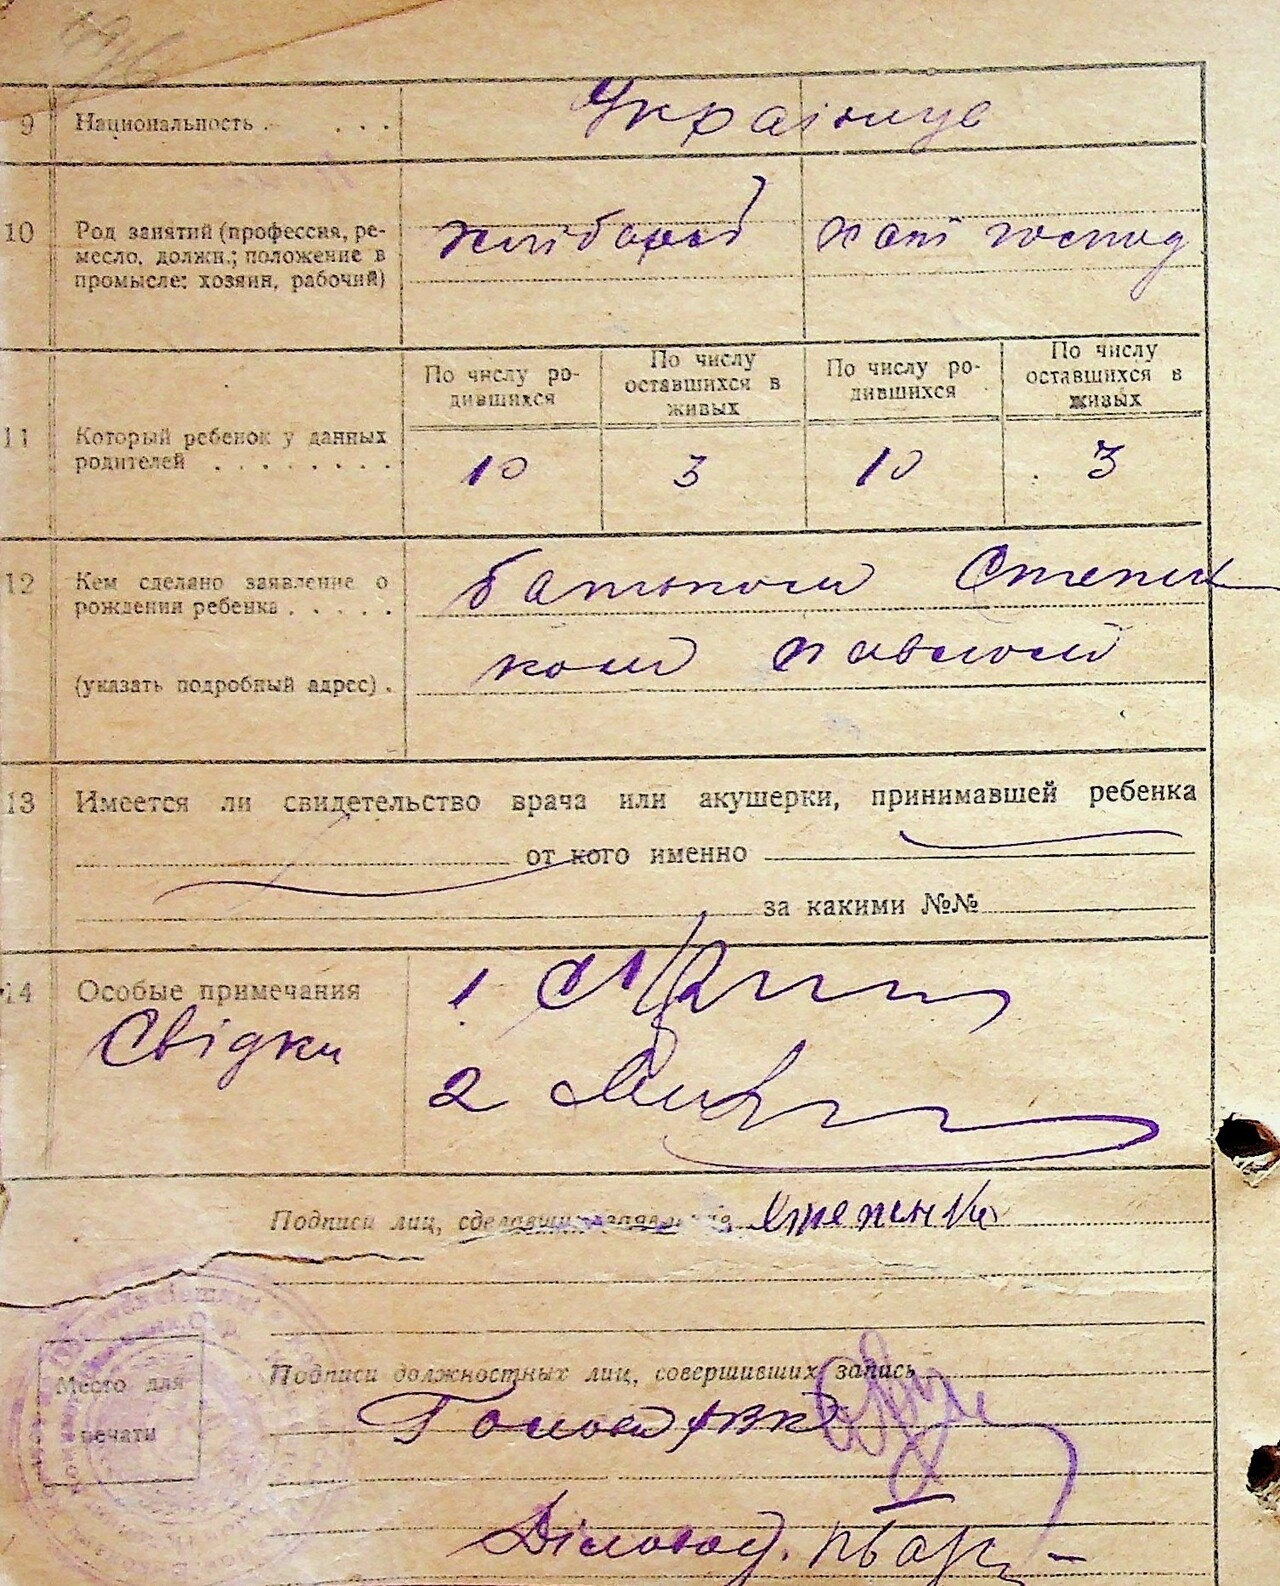 9 Национальность . . . . Українців
10 Род занятий (профессия, ре-
месло, должн.; положение в
промысле: хозяин, рабочий)
хліборob хатн господ
По числу ро-
дившихся
По числу
оставшихся в
живых
По числу ро-
дившихся
По числу
оставшихся в
живых
11 Который ребенок у данных
родителей . . . . . . . .
10 3 10 3
12 Кем сделано заявление о
рождении ребенка . . . . .
батьком Степен
ком Павлом
(указать подробный адрес) .
13 Имеется ли свидетельство врача или акушерки, принимавшей ребенка
от кого именно
за какими №№
14 Особые примечания
Свідки
1
2
Подписи лиц, сделавших заявление, Степенко
Подписи должностных лиц, совершивших запись
Голова РВК
Место для
печати
Діловод.